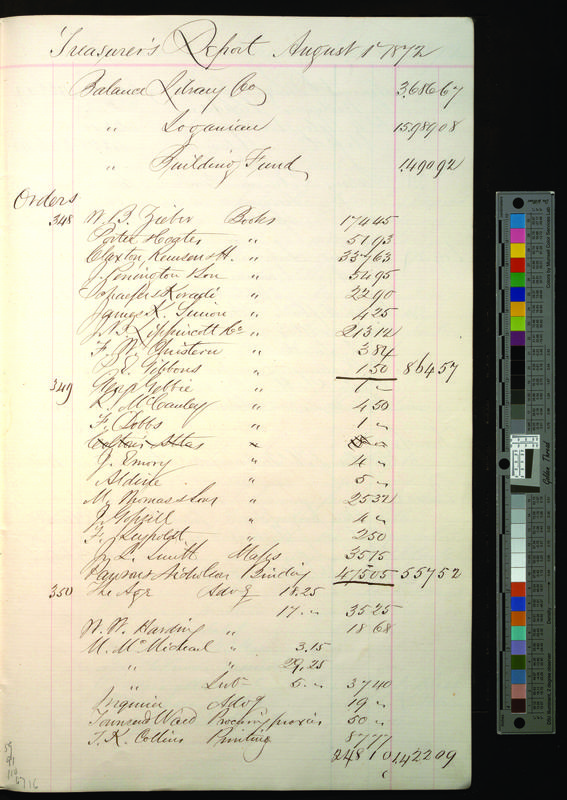 Treasurer's Report August 1st 1872
Balance Library Co 3,686 67
" Loganian 1598908
" Building Fund 1,490 92
Orders
348 W. B. Zieber Books 174 45
Porter & Coates " 51 93
Claxton, Remsen & H. " 337 63
J. Penington & Son " 54 95
Schaefer & Koradi " 22 90
James K. Simon " 4 25
J. B. Lippincott & Co " 213 12
F. W. Christern " 3 84
" 1 50 864 57
349 Gebbie " 1 "
McCauley " 4 50
F. Dobbs " 1 "
Colton's Atlas " "
J. Emory " 4 "
Aldine " 5 "
M. Thomas & Sons " 25 32
" 4 "
F. Leypoldt " 2 50
J. L. Smith Maps 35 15
Pawson & Nicholson Binding 475 05 557 52
350 The Age Advg 18.25
17. " 35 25
W. W. Harding " 18 68
M. McMichael " 3.15
" " 29.25
" Sub 5. " 37 40
Inquirer Advg 19 "
Townsend Ward Procuring proxies 50 "
T. K. Collins Printing 87 77
248 10 1,422 09